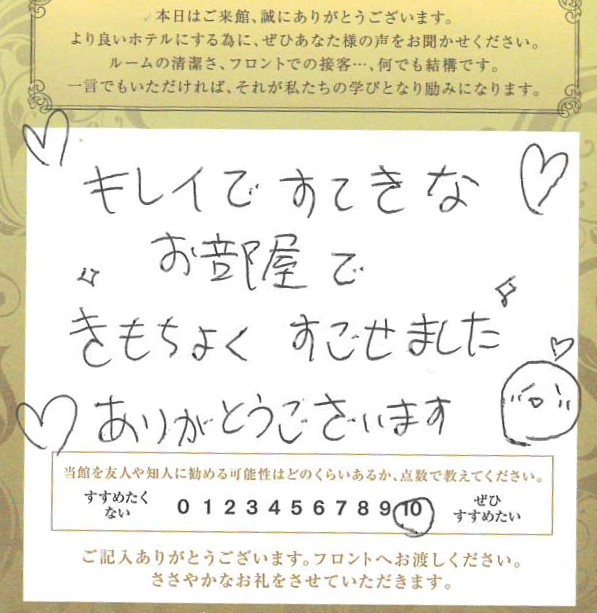 本日はご来館、誠にありがとうございます。
より良いホテルにする為に、ぜひあなた様の声をお聞かせください。
ルームの清潔さ、フロントでの接客…、何でも結構です。
一言でもいただければ、それが私たちの学びとなり励みになります。
キレイで すてきな
お部屋で
きもちよく すごせました
ありがとうございます
当館を友人や知人に勧める可能性はどのくらいあるか、点数で教えてください。
すすめたく
ない
0 1 2 3 4 5 6 7 8 9 10
ぜひ
すすめたい
ご記入ありがとうございます。フロントへお渡しください。
ささやかなお礼をさせていただきます。